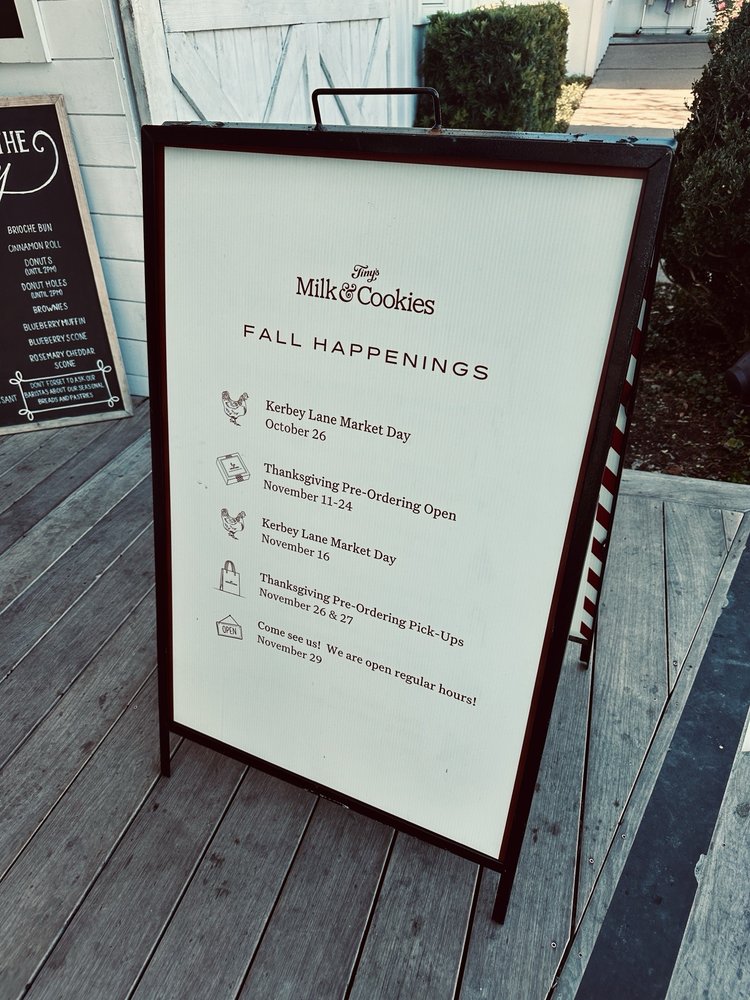 THE
BRIOCHE BUN
CINNAMON ROLL
DONUTS
(UNTIL 2PM)
DONUT HOLES
(UNTIL 2PM)
BROWNIES
BLUEBERRY MUFFIN
BLUEBERRY SCONE
ROSEMARY CHEDDAR
SCONE
DON'T FORGET TO ASK OUR
BARISTAS ABOUT OUR SEASONAL
BREADS AND PASTRIES
Tiny's
Milk & Cookies
FALL HAPPENINGS
Kerbey Lane Market Day
October 26
Thanksgiving Pre-Ordering Open
November 11-24
Kerbey Lane Market Day
November 16
Thanksgiving Pre-Ordering Pick-Ups
November 26 & 27
OPEN
Come see us! We are open regular hours!
November 29